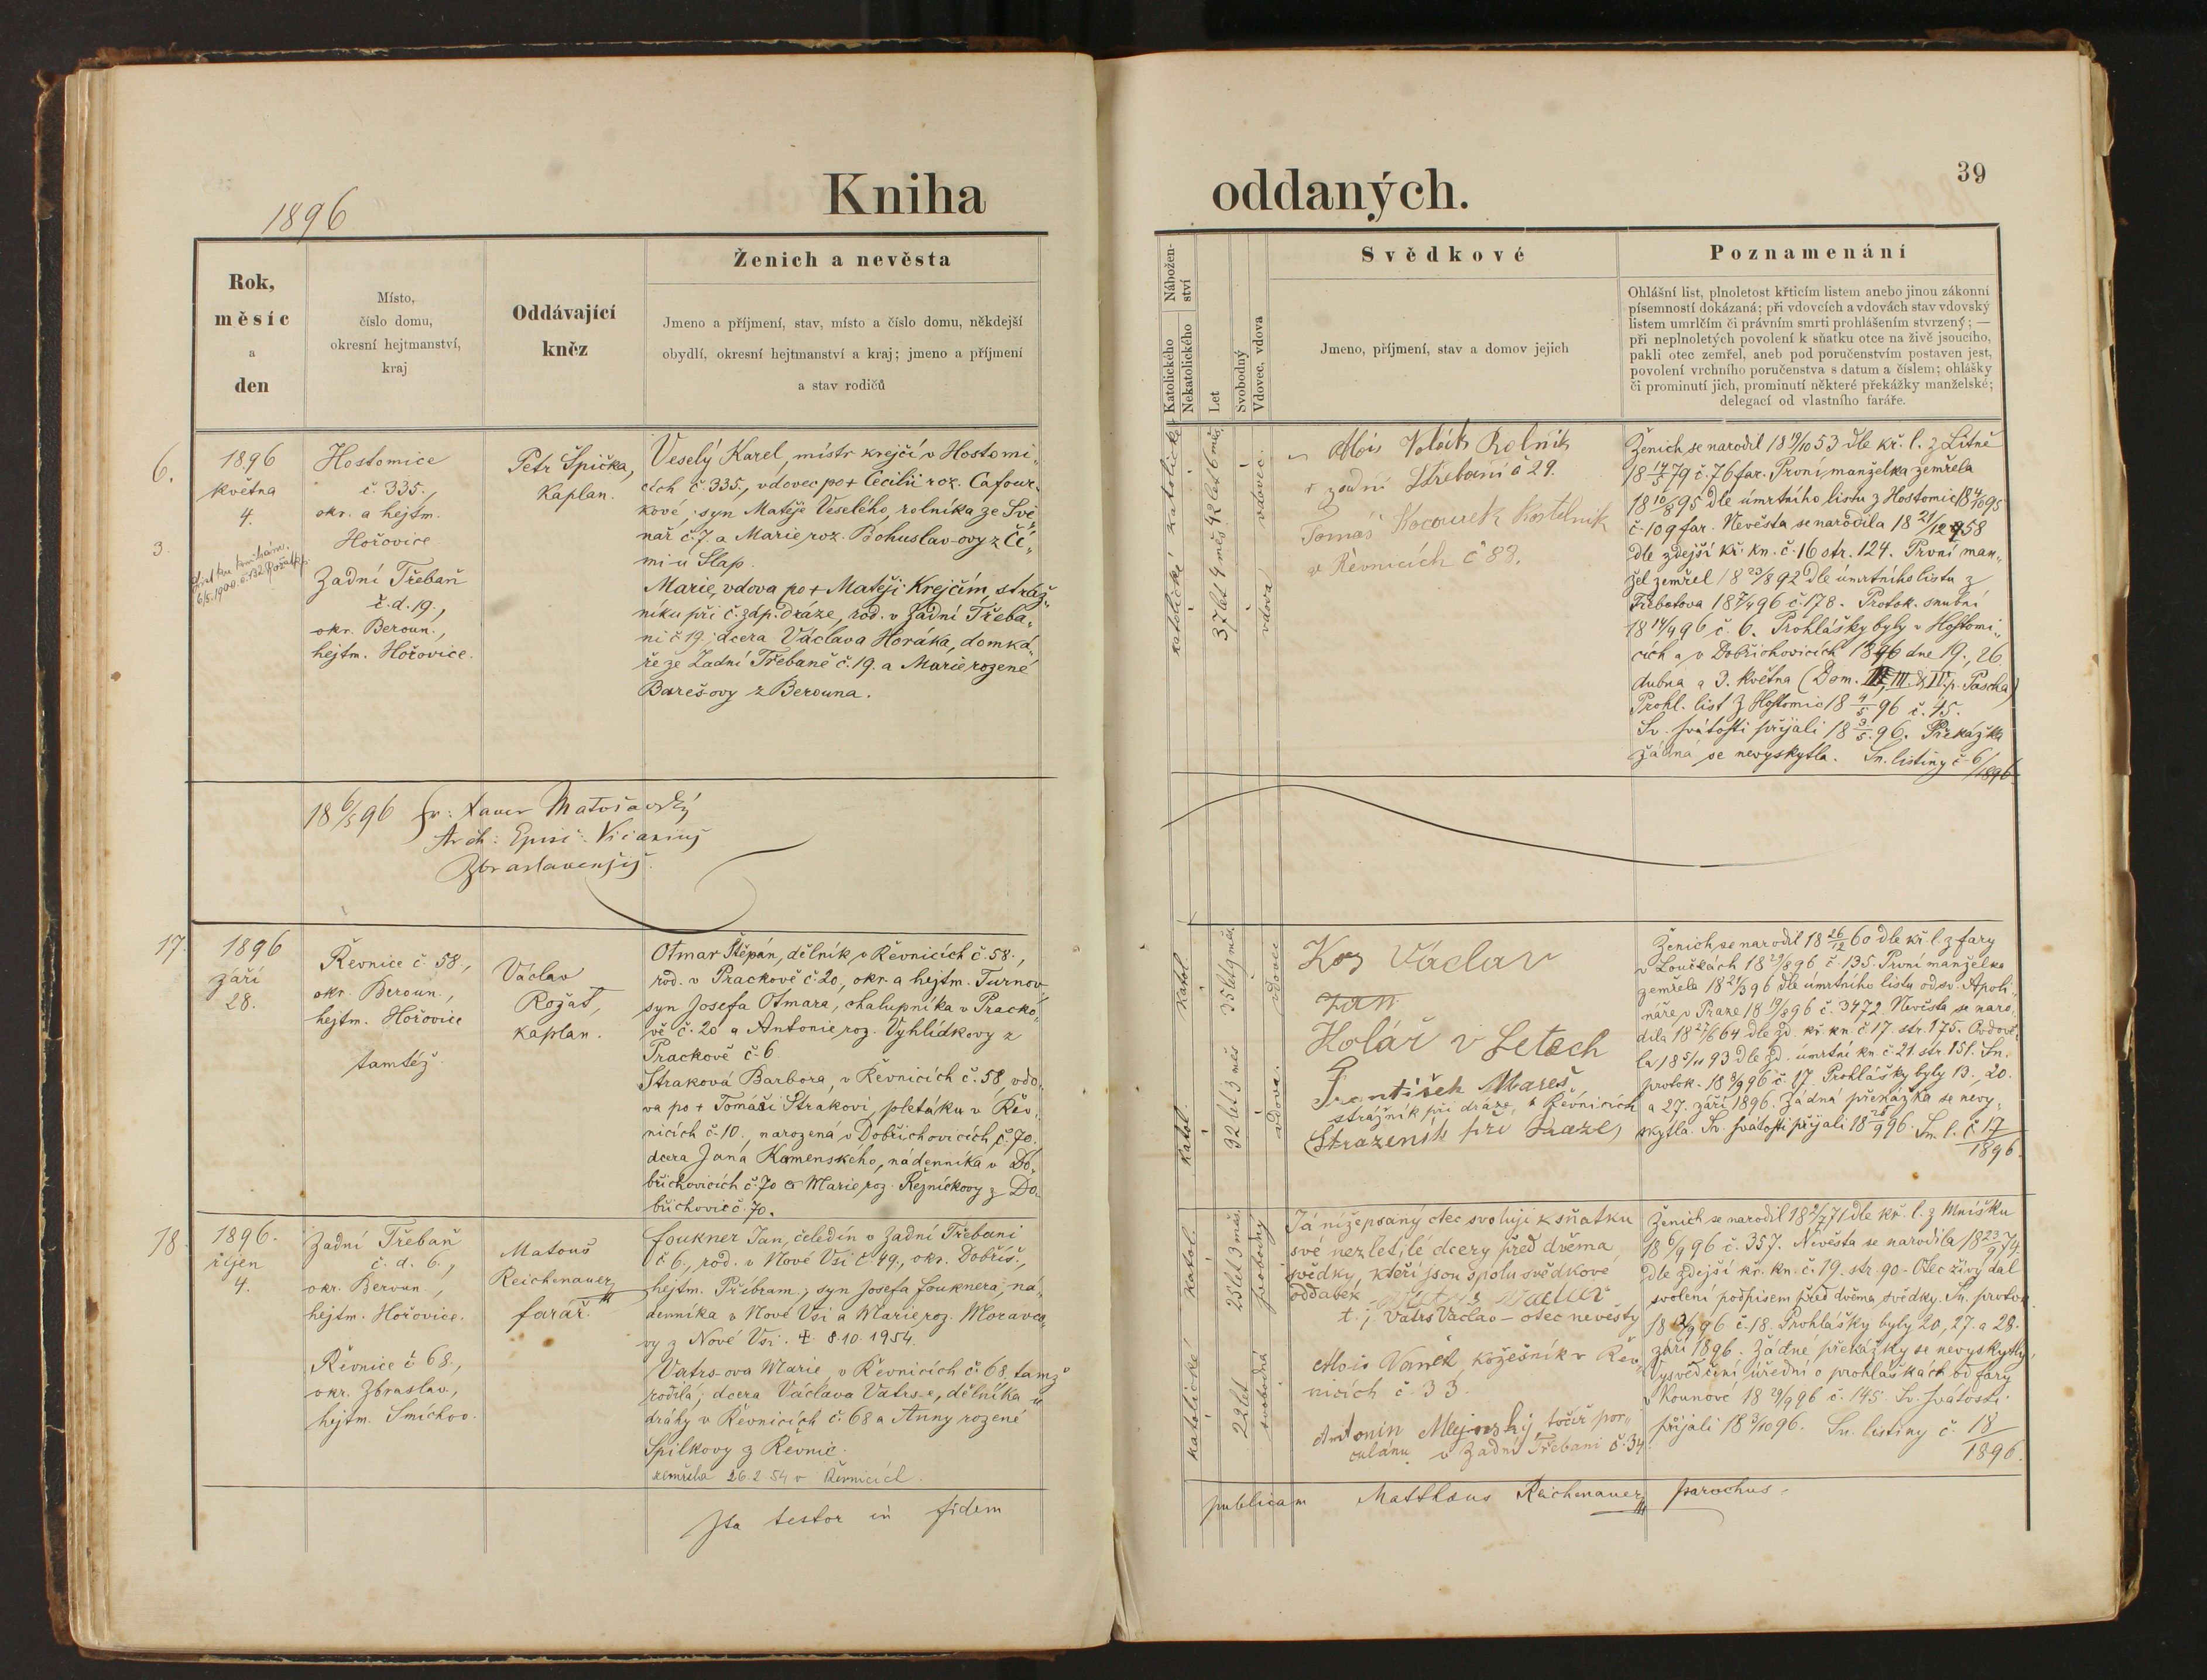 1896
Kniha
Rok,
měsíc
a
den
Místo,
číslo domu,
okresní hejtmanství,
kraj
Oddávající
kněz
Ženich a nevěsta
Jmeno a příjmení, stav, místo a číslo domu, někdejší
obydlí, okresní hejtmanství a kraj; jmeno a příjmení
a stav rodičů
6.
1896
května
4.
3.
6/5. 1900 č. 132
Hostomice
č. 335.,
okr. a hejtm.
Hořovice
Zadní Třebaň
č. d. 19.,
okr. Beroun.,
hejtm. Hořovice.
Petr Špička,
Kaplan.
Veselý Karel, místr krejčí v Hostomi„
cích č. 335., vdovec po + Cecilii roz. Cafour„
kové, syn Matěje Veselého, rolníka ze Svi„
nař č. 7 a Marie roz. Bohuslav-ovy z Či„
mi u Slap.
Marie, vdova po + Matěji Krejčím, stráž„
níku při č. záp. dráze, rod. v Zadní Třeba„
ni č 19., dcera Václava Horáka, domká„
ře ze Zadní Třebaně č. 19. a Marie rozené
Barešovy z Berouna.
18 6/5 96 Fr: Xaver Matoušovský
Arch: Episc: Vicarius
Zbraslavensis.
17.
1896
Září
28.
Řevnice č. 58.,
okr. Beroun.,
hejtm. Hořovice
tamtéž
Václav
Rožat,
Kaplan.
Otmar Štěpán, dělník v Řevnicích č. 58.,
rod. v Prackově č. 20, okr. a hejtm. Turnov
syn Josefa Otmara, chalupníka v Pracko„
vě č. 20 a Antonie roz. Vyhlídkovy z
Prackově č. 6.
Straková Barbora, v Řevnicích č. 58, vdo„
va po + Tomáši Strakovi, pletáku v Řev„
nicích č. 10., narozená v Dobřichovicích č. 70.
dcera Jana Kamenského, nádenníka v Do„
břichovicích č. 70 a Marie roz. Řezníčkovy z Do„
břichovic č. 70.
18.
1896.
říjen
4.
Zadní Třebaň
č. d. 6.,
okr. Beroun,
hejtm. Hořovice.
Řevnice č 68.,
okr. Zbraslav,
hejtm. Smíchov.
Matouš
Reichenauer
farář.
Foukner Jan, čeledín v Zadní Třebani
č 6., rod. v Nové Vsi č. 49., okr. Dobříš.,
hejtm. Příbram., syn Josefa Fouknera, ná„
denníka v Nové Vsi a Marie roz. Moravco„
vy z Nové Vsi. + 8.10.1954.
Vatrs-ova Marie, v Řevnicích č. 68, tamž
rodilá, dcera Václava Vatrs-e, dělníka u
dráhy v Řevnicích č. 68 a Anny rozené
Spilkovy z Řevnic.
zemřela 26.2.54 v Řevnicích.
Ita testor in fidem
39
oddaných.
Nábožen-
ství
Katolického
Nekatolického
Let
Svobodný
Vdovec, vdova
Svědkové
Jmeno, příjmení, stav a domov jejich
Poznamenání
Ohlášní list, plnoletost křticím listem anebo jinou zákonní
písemností dokázaná; při vdovcích a vdovách stav vdovský
listem umrlčím či právním smrti prohlášením stvrzený; —
při neplnoletých povolení k sňatku otce na živě jsoucího,
pakli otec zemřel, aneb pod poručenstvím postaven jest,
povolení vrchního poručenstva s datum a číslem; ohlášky
či prominutí jich, prominutí některé překážky manželské;
delegací od vlastního faráře.
katolické
katolické
37 let 4 měs.
42 let 6 měs.
vdova
vdovec.
Rolník
v zadní Střebani č 29.
Tomáš Kocourek Kostelník
v Řevnicích č 83.
Ženich se narodil 18 19/10 53 dle kř. l. z Litně
18 14/5 79 č. 76 far. První manželka zemřela
18 10/8 95 dle úmrtního listu z Hostomic 18 4/10 95
č. 109 far. Nevěsta se narodila 18 21/12 58
dle zdejší kř. kn. č. 16 str. 124. První man„
žel zemřel 18 23/8 92 dle úmrtního listu z
Třebotova 18 7/4 96 č. 178. Protok. snubní
18 14/4 96 č. 6. Prohlášky byly v Hostomi„
cích a v Dobřichovicích 1896 dne 19., 26.
dubna a 3. května (Dom. II, III. & IV. p. Pascha)
Prohl. list z Hostomic 18 4/5 96 č. 45.
Sv. svátosti přijali 18 3/5. 96. Překážka
žádná se nevyskytla. Sn. listiny č. 6/1896.
Katol.
Katol.
35 let 9 měs.
32 let 3 měs
vdovec
vdova.
Koz Václav
Kolář v Letech
František Mareš,
strážník při dráze, v Řevnicích
(Strazenik při draze)
Ženich se narodil 18 26/12 60 dle kř. l. z fary
v Loučkách 18 29/8 96 č. 135. První manželka
zemřela 18 21/3 96 dle úmrtního listu od sv. Apoli„
náře v Praze 18 19/8 96 č. 3472. Nevěsta se naro„
dila 18 27/6 64 dle zd. kř. kn. č. 17. str. 175. Ovdově„
la 18 5/11 93 dle zd. úmrtní kn. č. 21. str. 151. Sn.
protok. 18 8/9 96 č. 17. Prohlášky byly 13., 20.
a 27. září 1896. Žádná překážka se nevy„
skytla. Sv. svátosti přijali 18 26/9 96. Sn. l. č. 17/1896.
Katol.
katolické
25 let 3 měs.
22 let
svobodný
svobodná
Já nížepsaný otec svoluji k sňatku
své nezletilé dcery před dvěma
svědky, kteří jsou spolu svědkové
oddavek
t. j. Vatrs Václav – otec nevěsty
Alois Vaněk, kožešník v Řev„
nicích č. 33.
Antonin Mejovský, točíř por„
culánu v Zadní Třebani č. 34.
Ženich se narodil 18 2/7 71 dle kř. l. z Mníšku
18 6/9 96 č. 357. Nevěsta se narodila 18 23/9 74.
dle zdejší kř. kn. č. 19. str. 90 - Otec živý dal
svolení podpisem před dvěma svědky. Sn. protok.
18 /9 96 č. 18. Prohlášky byly 20, 27. a 28.
září 1896. Žádné překážky se nevyskytly.
Vysvědčení úřední o prohláškách od fary
v Kounově 18 29/9 96 č. 145. Sv. svátosti
přijali 18 3/10 96. Sn. listiny č. 18/1896.
publicam Matthaus Reichenauer parochus.